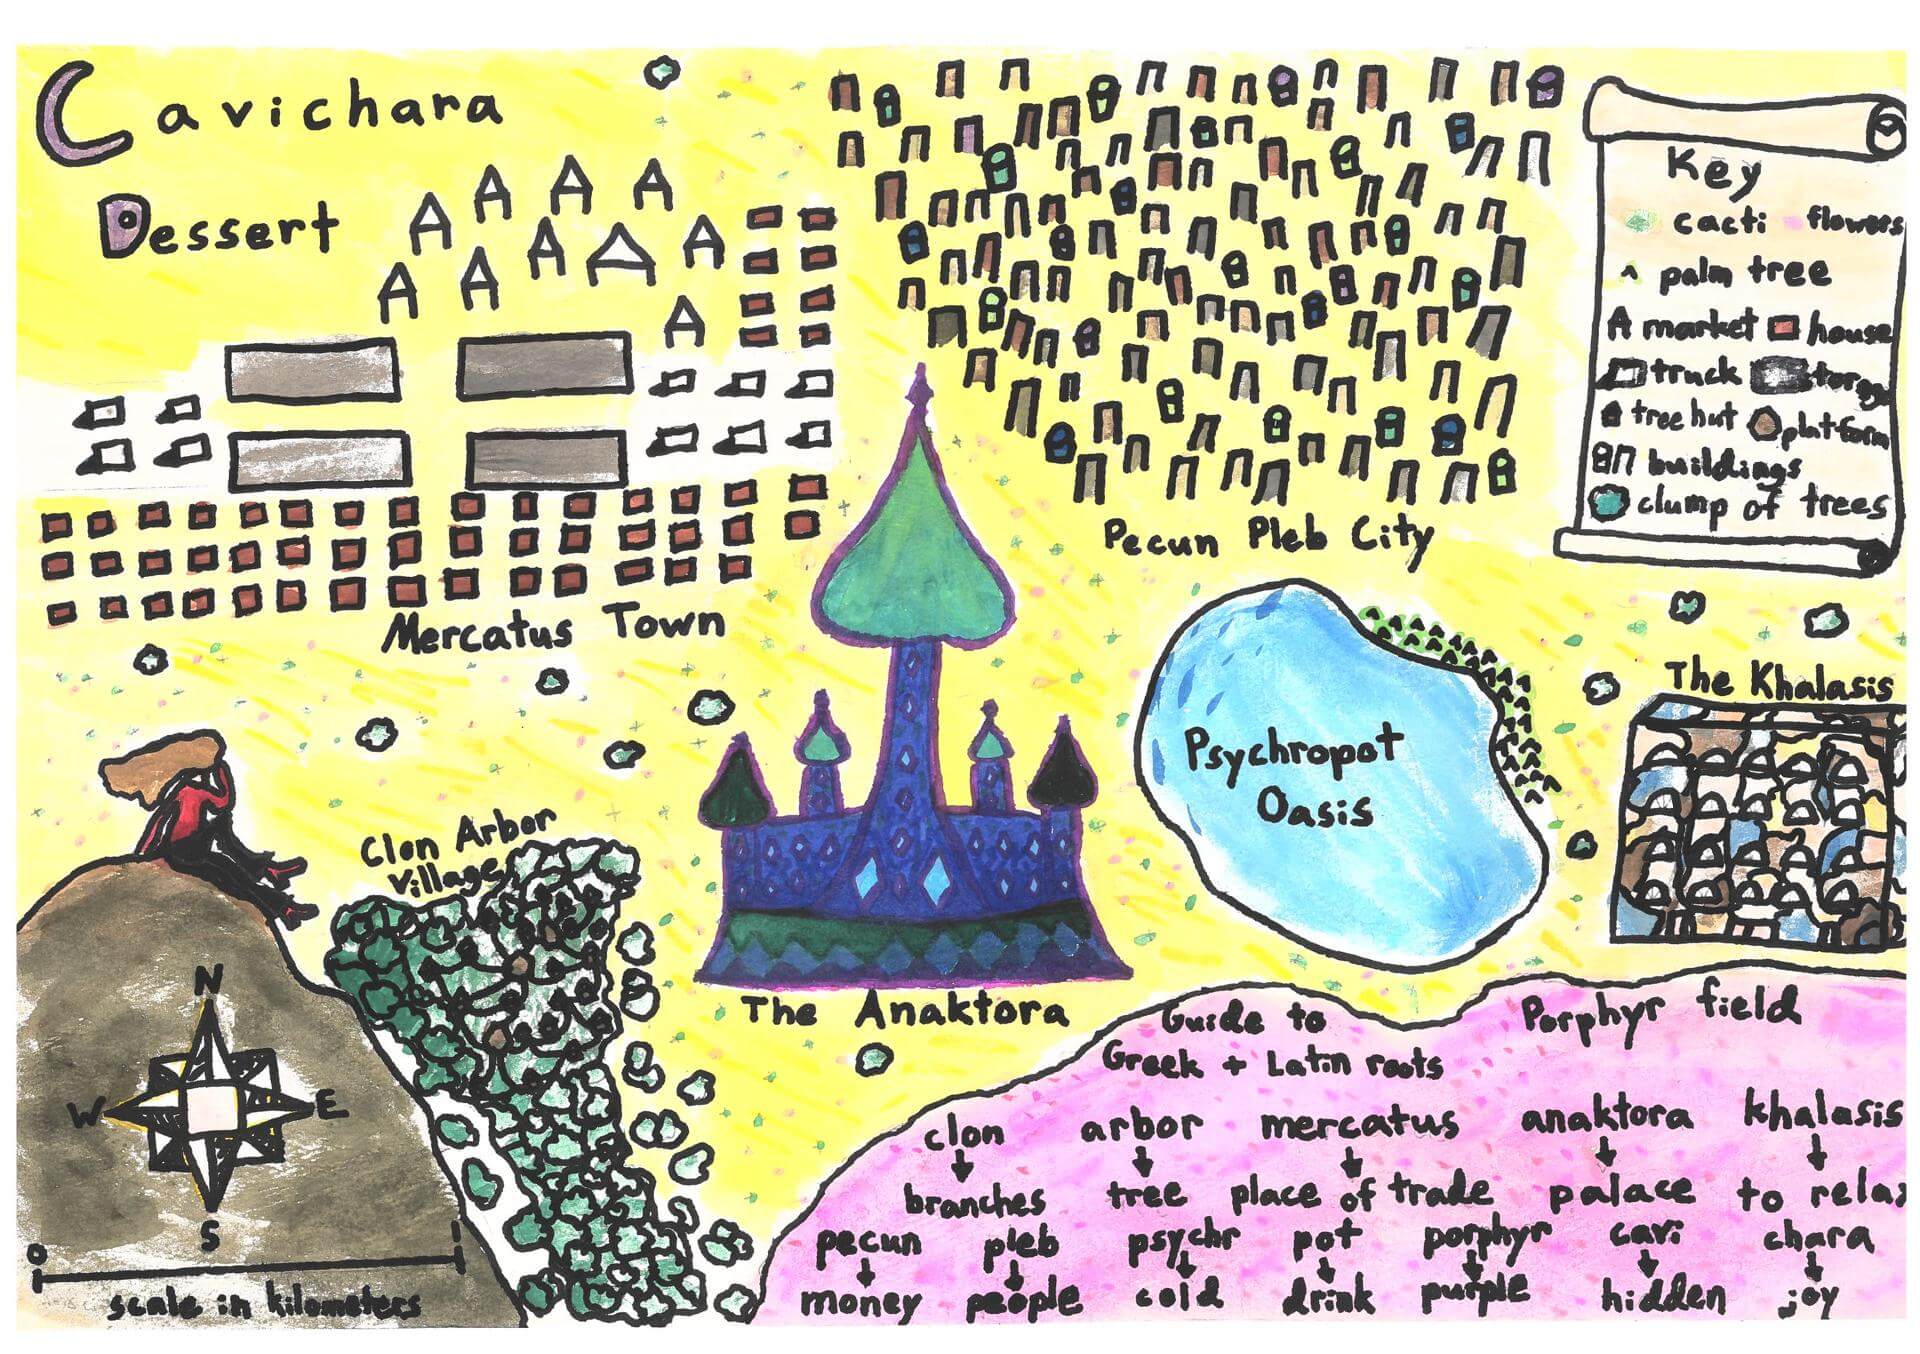 Cavichara
Dessert
Key
cacti flowers
palm tree
market house
truck storage
tree hut platform
buildings
clump of trees
Pecun Pleb City
Mercatus Town
The Khalasis
Psychropot
Oasis
Clon Arbor
Village
The Anaktora
N
W E
S
0 1
scale in kilometers
Guide to
Greek + Latin roots
Porphyr field
clon arbor mercatus anaktora khalasis
branches tree place of trade palace to relax
pecun pleb psychr pot porphyr cavi chara
money people cold drink purple hidden joy